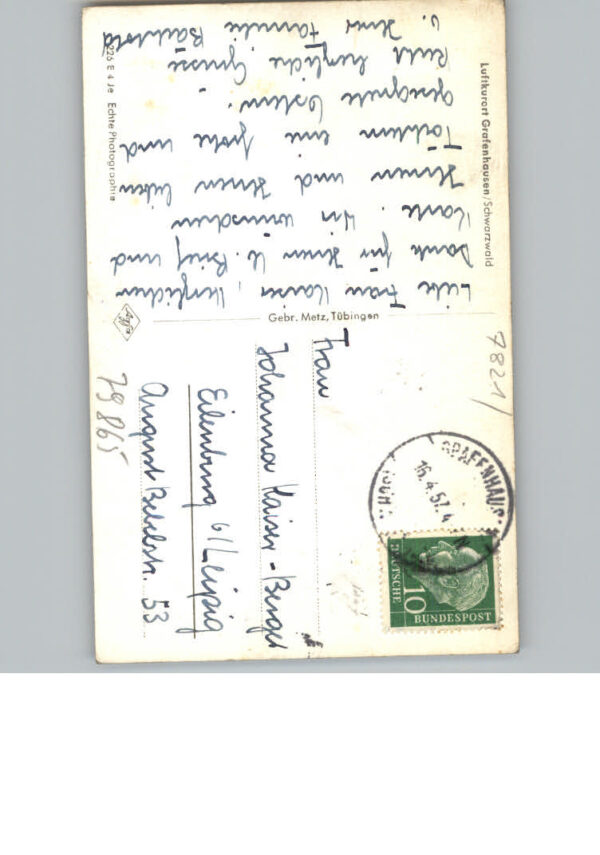 Luftkurort Grafenhausen/Schwarzwald
Liebe Frau Kaiser, herzlichen
Dank für Ihren lb. Brief und
Karte. Wir wünschen
Ihnen und Ihren lieben
Töchtern eine frohe und
gesegnete Ostern.
Recht herzliche Grüsse
v. Ihrer Familie
226 E 4 Je Echte Photographie
Gebr. Metz, Tübingen
Agfa
7821/
GRAFENHAUS
16.4.57.
DEUTSCHE
10
BUNDESPOST
Frau
Johanna Kaiser-Berger
Eilenburg b/Leipzig
August Bebelstr. 53
79865